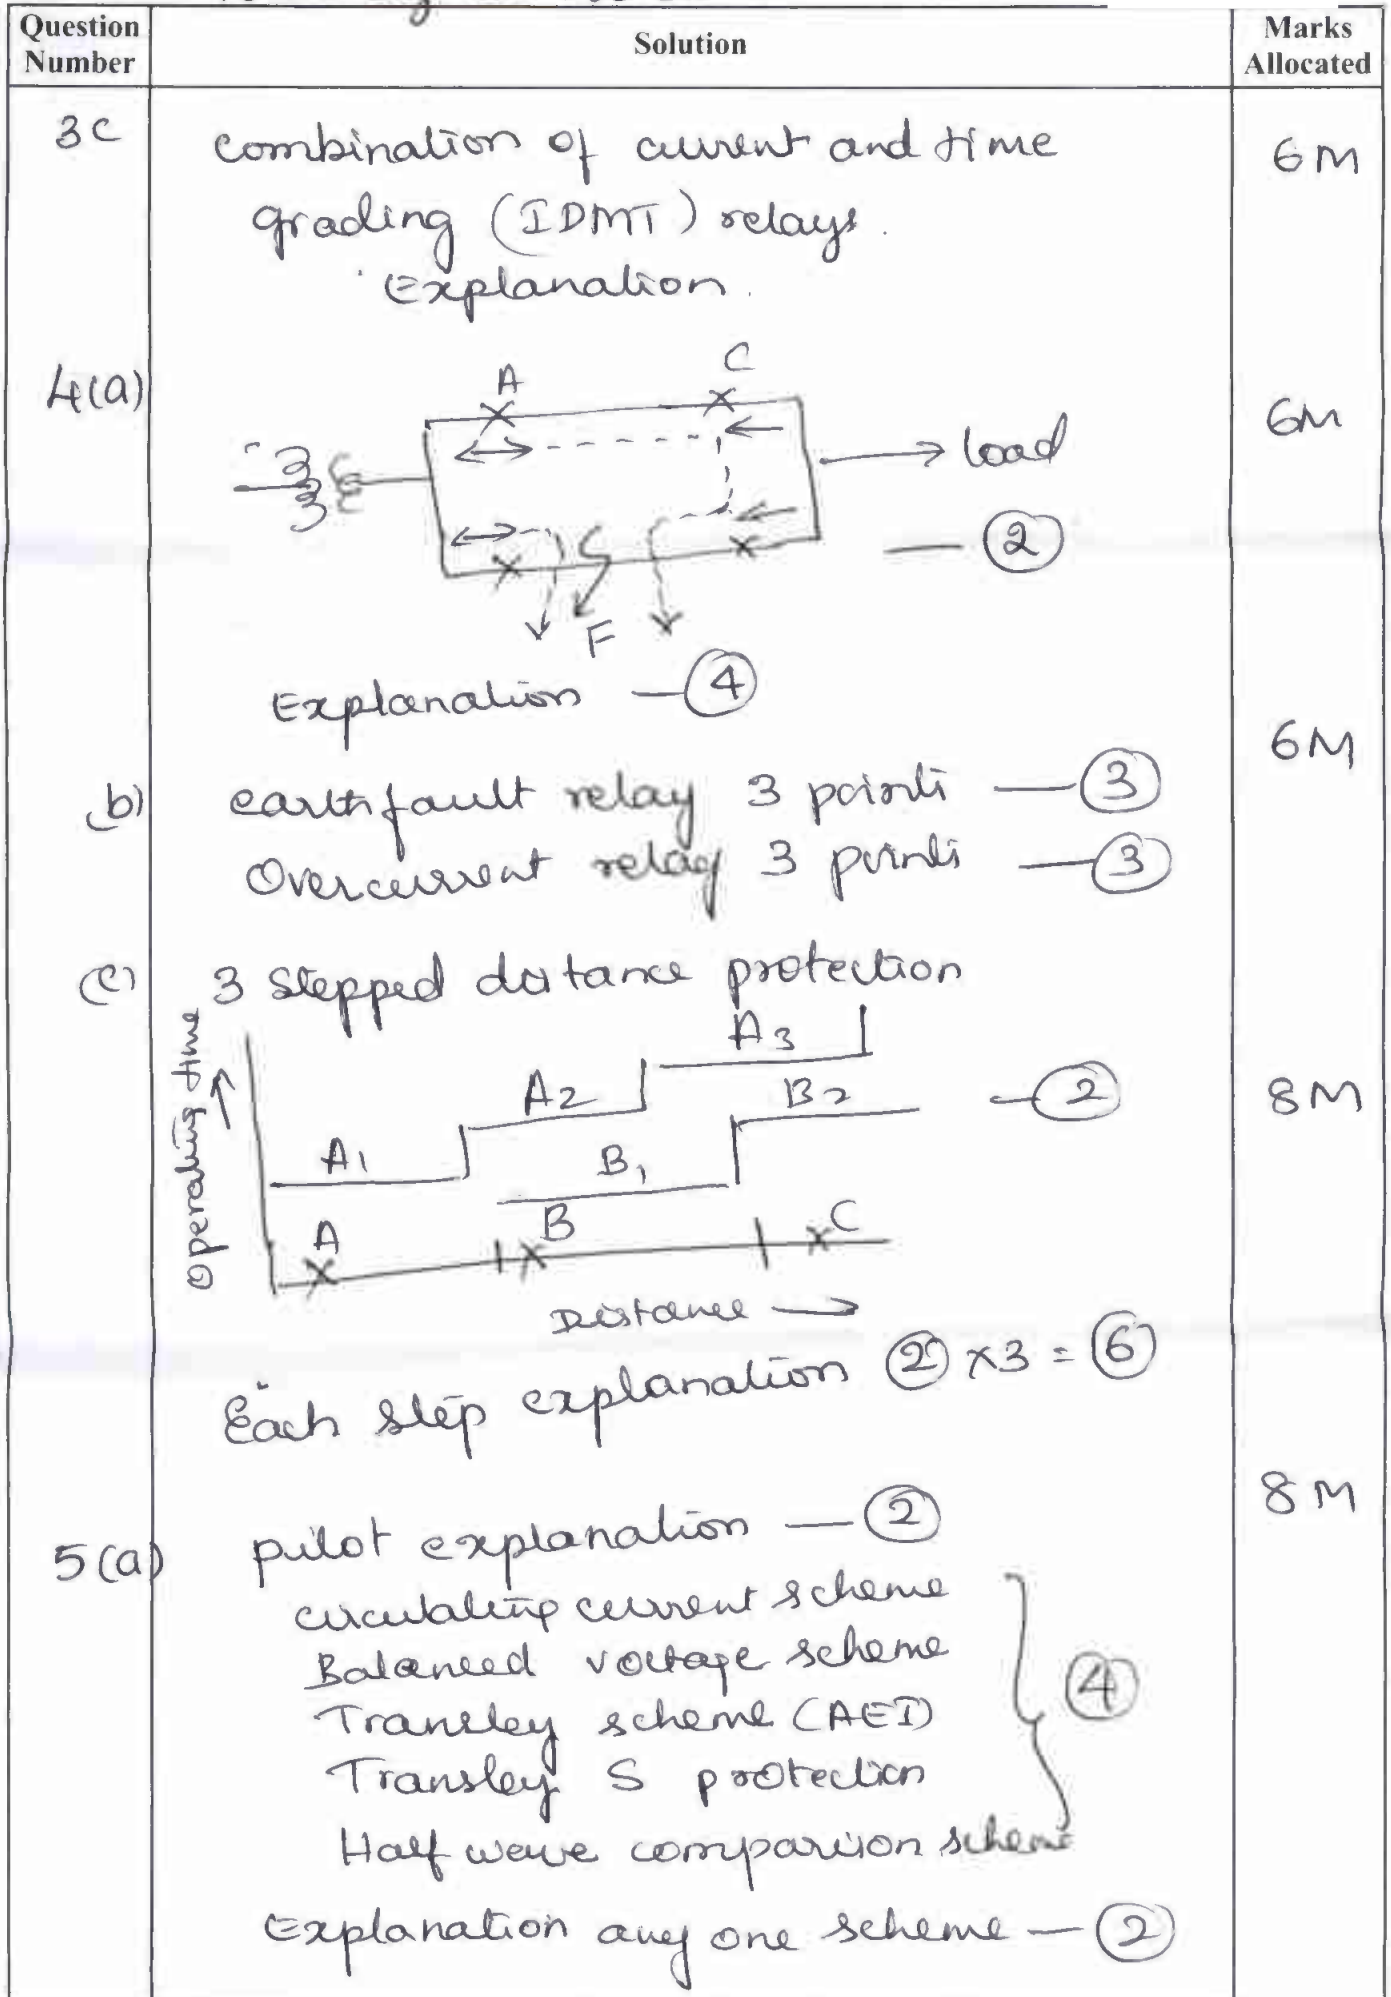 Question Number
Solution
Marks Allocated
3c
combination of current and time
6M
grading (IDMT) relays.
Explanation.
4(a)
A
C
6M
load
2
F
Explanation — 4
6M
b) earth fault relay 3 points — 3
Overcurrent relay 3 points — 3
(c) 3 stepped distance protection
Operating time
A1
A2
A3
B1
B2
— 2
8M
A
B
C
Distance →
Each step explanation 2 x3 = 6
8M
5(a) pilot explanation — 2
circulating current scheme
Balanced voltage scheme
4
Transley scheme (AEI)
Transley S protection
Half wave comparison scheme
Explanation any one scheme — 2